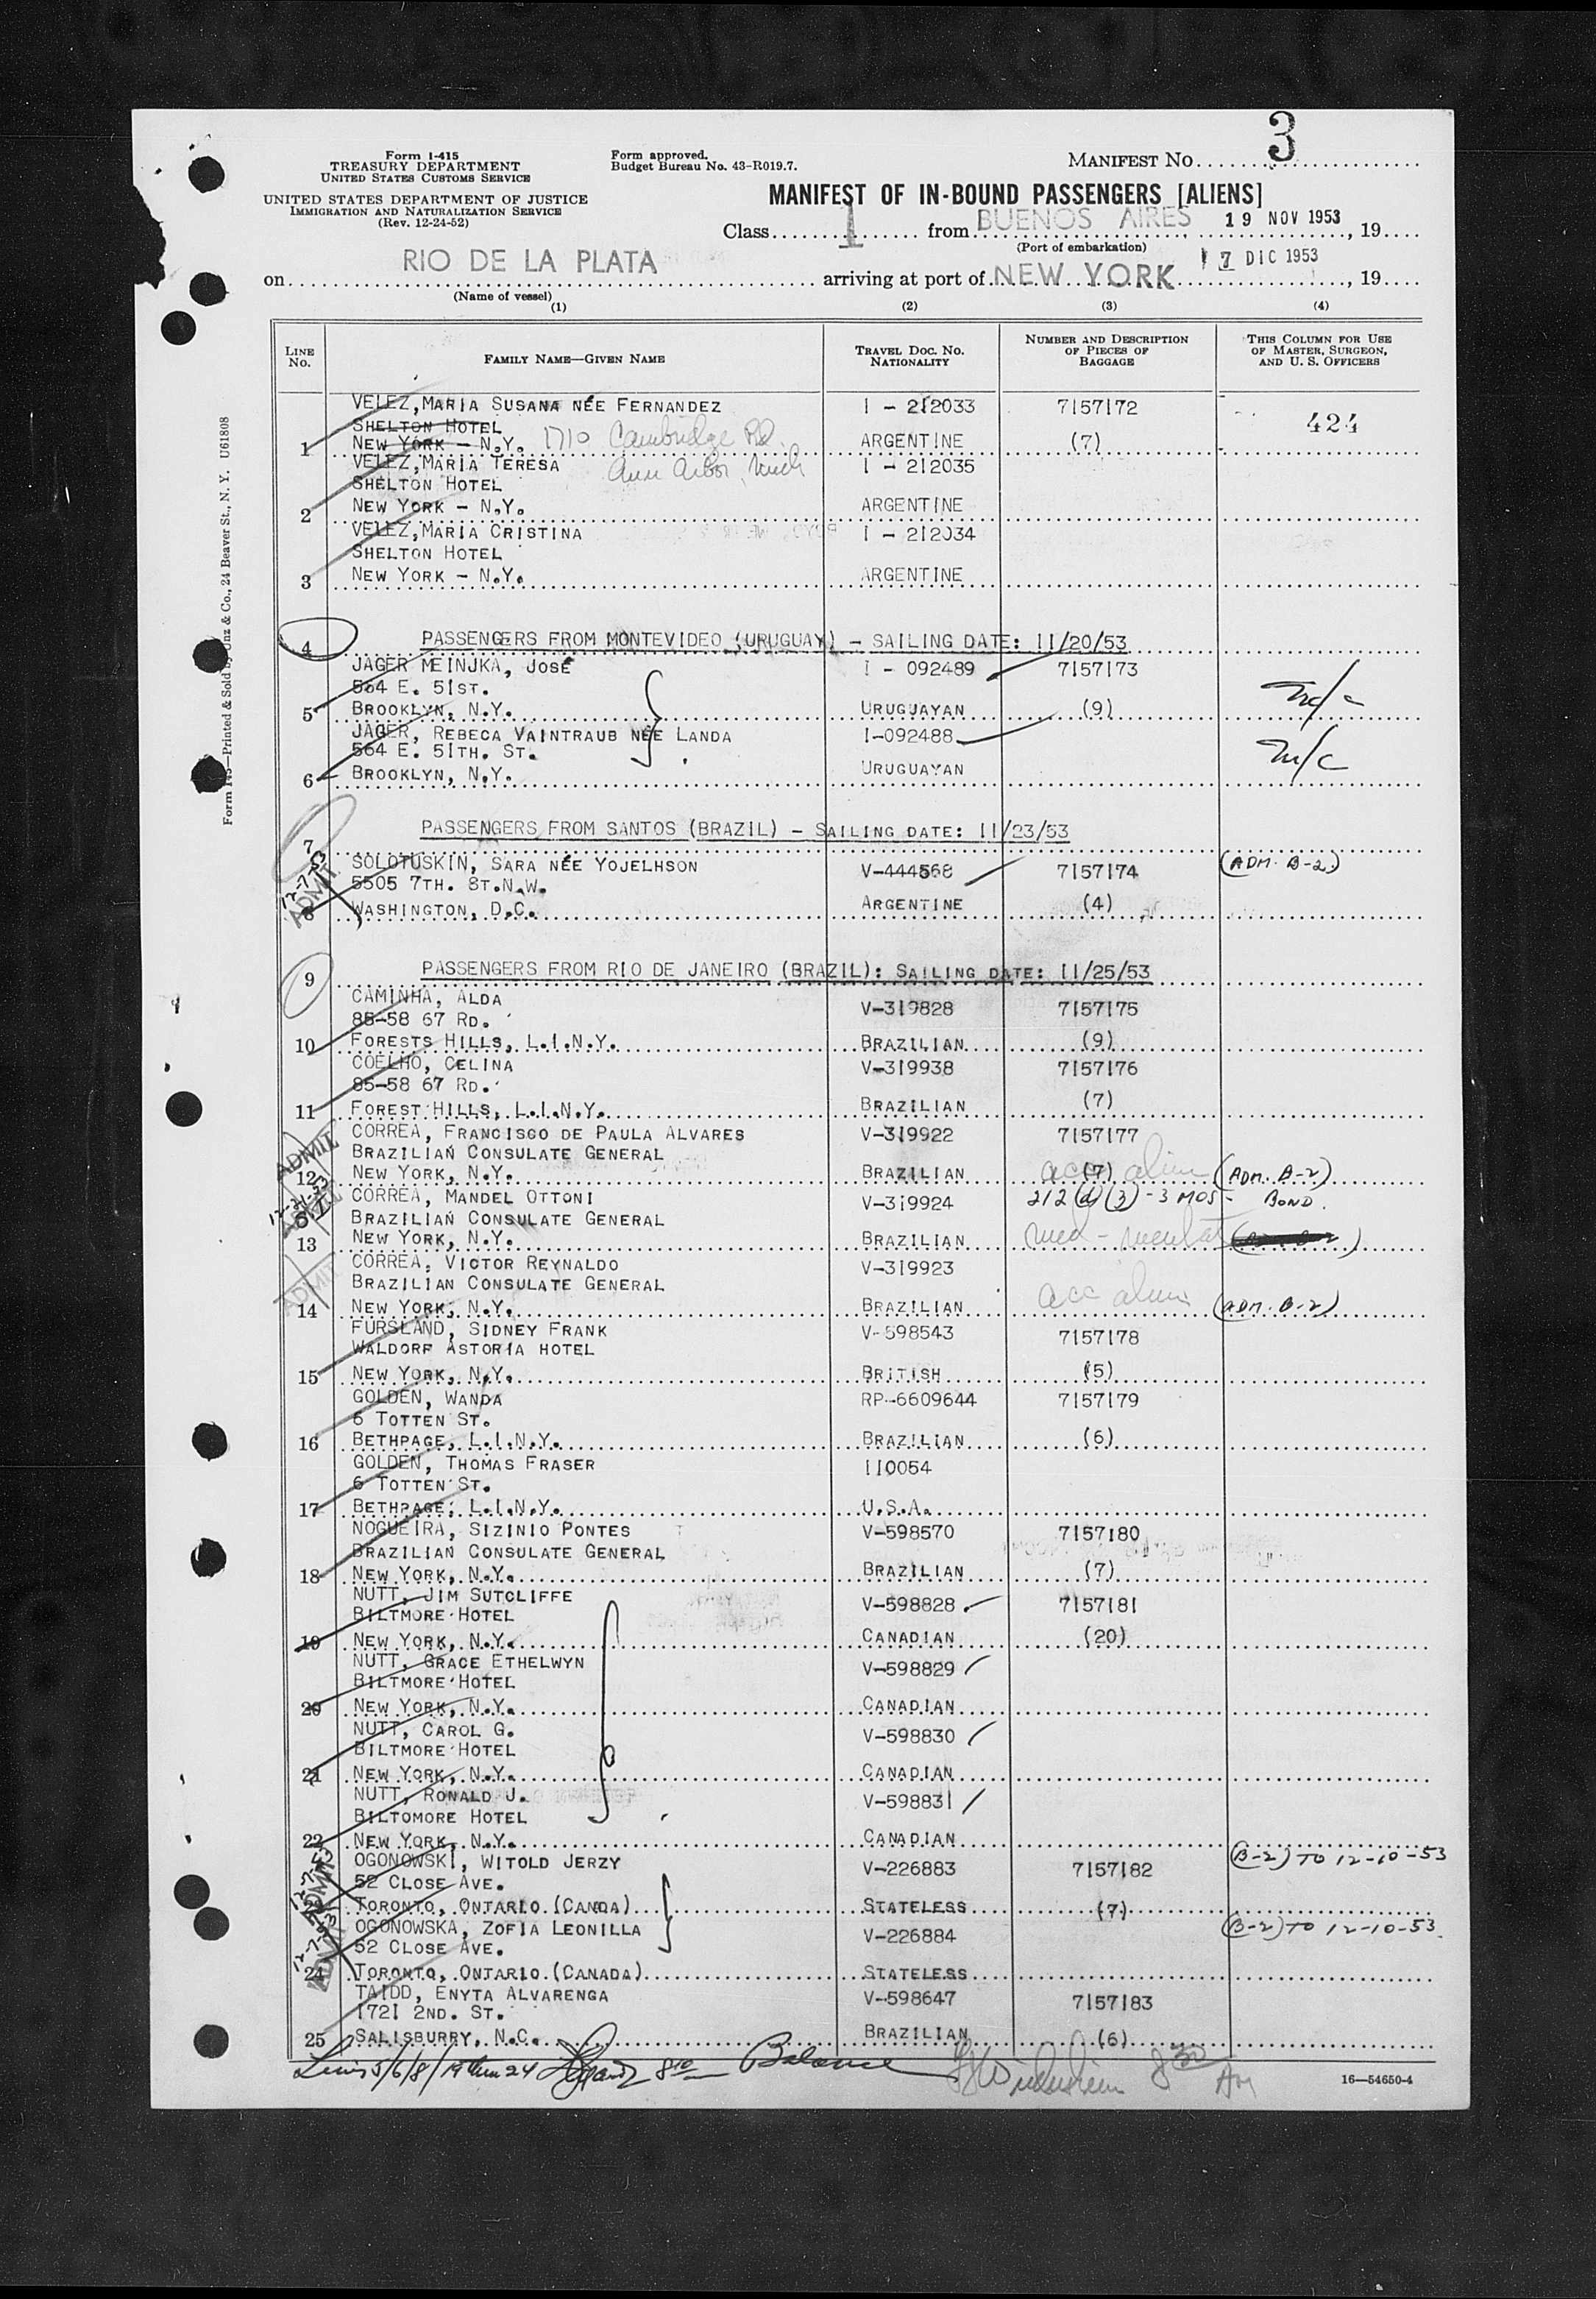 3
Form I-415
TREASURY DEPARTMENT
UNITED STATES CUSTOMS SERVICE
UNITED STATES DEPARTMENT OF JUSTICE
IMMIGRATION AND NATURALIZATION SERVICE
(Rev. 12-24-52)
Form approved.
Budget Bureau No. 43-R019.7.
MANIFEST NO.
MANIFEST OF IN-BOUND PASSENGERS [ALIENS]
Class 1 from BUENOS AIRES 19 NOV 1953, 19
(Port of embarkation)
on RIO DE LA PLATA arriving at port of NEW YORK 7 DIC 1953, 19
(Name of vessel)
(1) (2) (3) (4)
LINE NO. FAMILY NAME—GIVEN NAME TRAVEL DOC. NO. NATIONALITY NUMBER AND DESCRIPTION OF PIECES OF BAGGAGE THIS COLUMN FOR USE OF MASTER, SURGEON, AND U. S. OFFICERS
VELEZ, MARIA SUSANA NÉE FERNANDEZ I - 212033 7157172 424
SHELTON HOTEL
1 NEW YORK - N.Y. 1710 Cambridge Rd. ARGENTINE (7)
Ann Arbor, Mich
VELEZ, MARIA TERESA I - 212035
SHELTON HOTEL
2 NEW YORK - N.Y. ARGENTINE
VELEZ, MARIA CRISTINA I - 212034
SHELTON HOTEL
3 NEW YORK - N.Y. ARGENTINE
4 PASSENGERS FROM MONTEVIDEO (URUGUAY) - SAILING DATE: 11/20/53
JAGER MEINJKA, JOSÉ I - 092489 7157173
564 E. 51ST.
5 BROOKLYN, N.Y. URUGUAYAN (9)
JAGER, REBECA VAINTRAUB NÉE LANDA I-092488
564 E. 51TH. ST.
6 BROOKLYN, N.Y. URUGUAYAN
7 PASSENGERS FROM SANTOS (BRAZIL) - SAILING DATE: 11/23/53
SOLOTUSKIN, SARA NÉE YOJELHSON V-444568 7157174 (ADM. B-2)
5505 7TH. ST.N.W.
12-7-53 ADMIT
8 WASHINGTON, D.C. ARGENTINE (4)
9 PASSENGERS FROM RIO DE JANEIRO (BRAZIL): SAILING DATE: 11/25/53
CAMINHA, ALDA V-319828 7157175
85-58 67 RD.
10 FORESTS HILLS, L.I.N.Y. BRAZILIAN (9)
COELHO, CELINA V-319938 7157176
85-58 67 RD.
11 FOREST HILLS, L.I.N.Y. BRAZILIAN (7)
CORREA, FRANCISCO DE PAULA ALVARES V-319922 7157177
BRAZILIAN CONSULATE GENERAL
ADMIT
12 NEW YORK, N.Y. BRAZILIAN (7) acc alien (ADM. B-2)
CORREA, MANDEL OTTONI V-319924 212(d)(3) - 3 MOS - BOND.
BRAZILIAN CONSULATE GENERAL
13 NEW YORK, N.Y. BRAZILIAN
CORREA, VICTOR REYNALDO V-319923
BRAZILIAN CONSULATE GENERAL
ADMIT
14 NEW YORK, N.Y. BRAZILIAN acc alien (ADM. B-2)
FURSLAND, SIDNEY FRANK V-598543 7157178
WALDORF ASTORIA HOTEL
15 NEW YORK, N.Y. BRITISH (5)
GOLDEN, WANDA RP-6609644 7157179
6 TOTTEN ST.
16 BETHPAGE, L.I.N.Y. BRAZILIAN (6)
GOLDEN, THOMAS FRASER 110054
6 TOTTEN ST.
17 BETHPAGE, L.I.N.Y. U.S.A.
NOGUEIRA, SIZINIO PONTES V-598570 7157180
BRAZILIAN CONSULATE GENERAL
18 NEW YORK, N.Y. BRAZILIAN (7)
NUTT, JIM SUTCLIFFE V-598828 7157181
BILTMORE HOTEL
19 NEW YORK, N.Y. CANADIAN (20)
NUTT, GRACE ETHELWYN V-598829
BILTMORE HOTEL
20 NEW YORK, N.Y. CANADIAN
NUTT, CAROL G. V-598830
BILTMORE HOTEL
21 NEW YORK, N.Y. CANADIAN
NUTT, RONALD J. V-598831
BILTOMORE HOTEL
22 NEW YORK, N.Y. CANADIAN
OGONOWSKI, WITOLD JERZY V-226883 7157182 (B-2) TO 12-10-53
52 CLOSE AVE.
12-7-53 ADMIT
23 TORONTO, ONTARIO (CANDA) STATELESS (7)
OGONOWSKA, ZOFIA LEONILLA V-226884 (B-2) TO 12-10-53
52 CLOSE AVE.
12-7-53 ADMIT
24 TORONTO, ONTARIO (CANADA) STATELESS
TAIDD, ENYTA ALVARENGA V-598647 7157183
1721 2ND. ST.
25 SALISBURRY, N.C. BRAZILIAN (6)
Lines 5/6/8/19 thru 24 8 10 Balance 8 30 AM
16—54650-4
Form I-415—Printed & Sold by Unz & Co., 24 Beaver St., N. Y. U61808